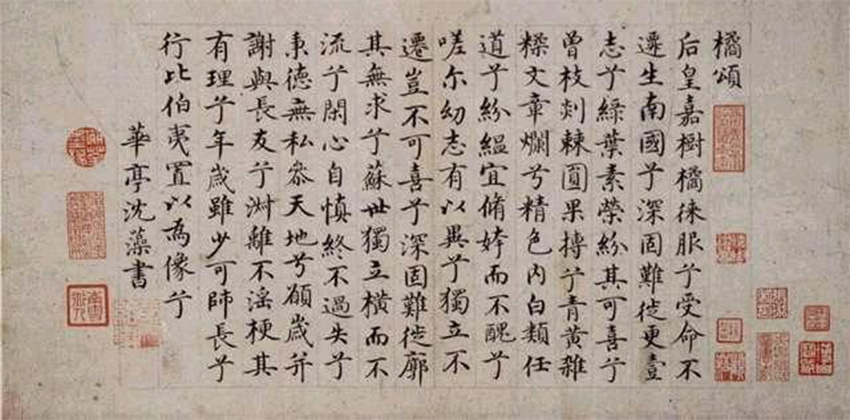 橘頌
后皇嘉樹橘徠服兮受命不
遷生南國兮深固難徙更壹
志兮綠葉素榮紛其可喜兮
曾枝剡棘圓果摶兮青黃雜
糅文章爛兮精色内白類任
道兮紛緼宜脩姱而不醜兮
嗟尔幼志有以異兮獨立不
遷豈不可喜兮深固難徙廓
其無求兮蘇世獨立橫而不
流兮閑心自慎終不過失兮
秉德無私叅天地兮願歲并
謝與長友兮淑離不淫梗其
有理兮年歲雖少可師長兮
行比伯夷置以為像兮
華亭沈藻書